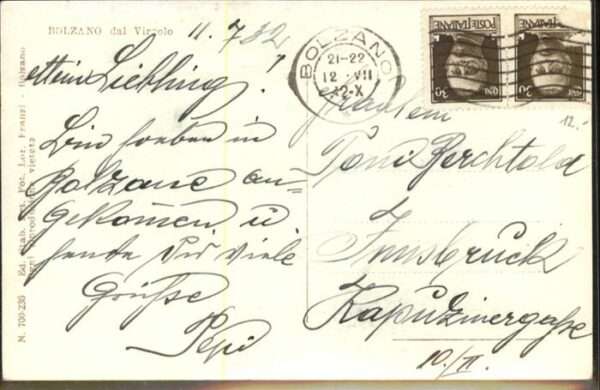 BOLZANO dal Virgolo
11. 7 32
Mein Liebling!
Bin soeben in
Bolzano an-
gekomen u
sende Dir viele
Grüsse
Pepi
BOLZANO
21-22
12 VII
32-X
POSTE ITALIANE
POSTE ITALIANE
30
CENT
30
CENT
12.
Fräulein
Toni Berchtold
Innsbruck
Kapuzinergasse
10./II.
N. 700-230 Ed. Stab. Art. Fot. Lor. Fränzl - Bolzano